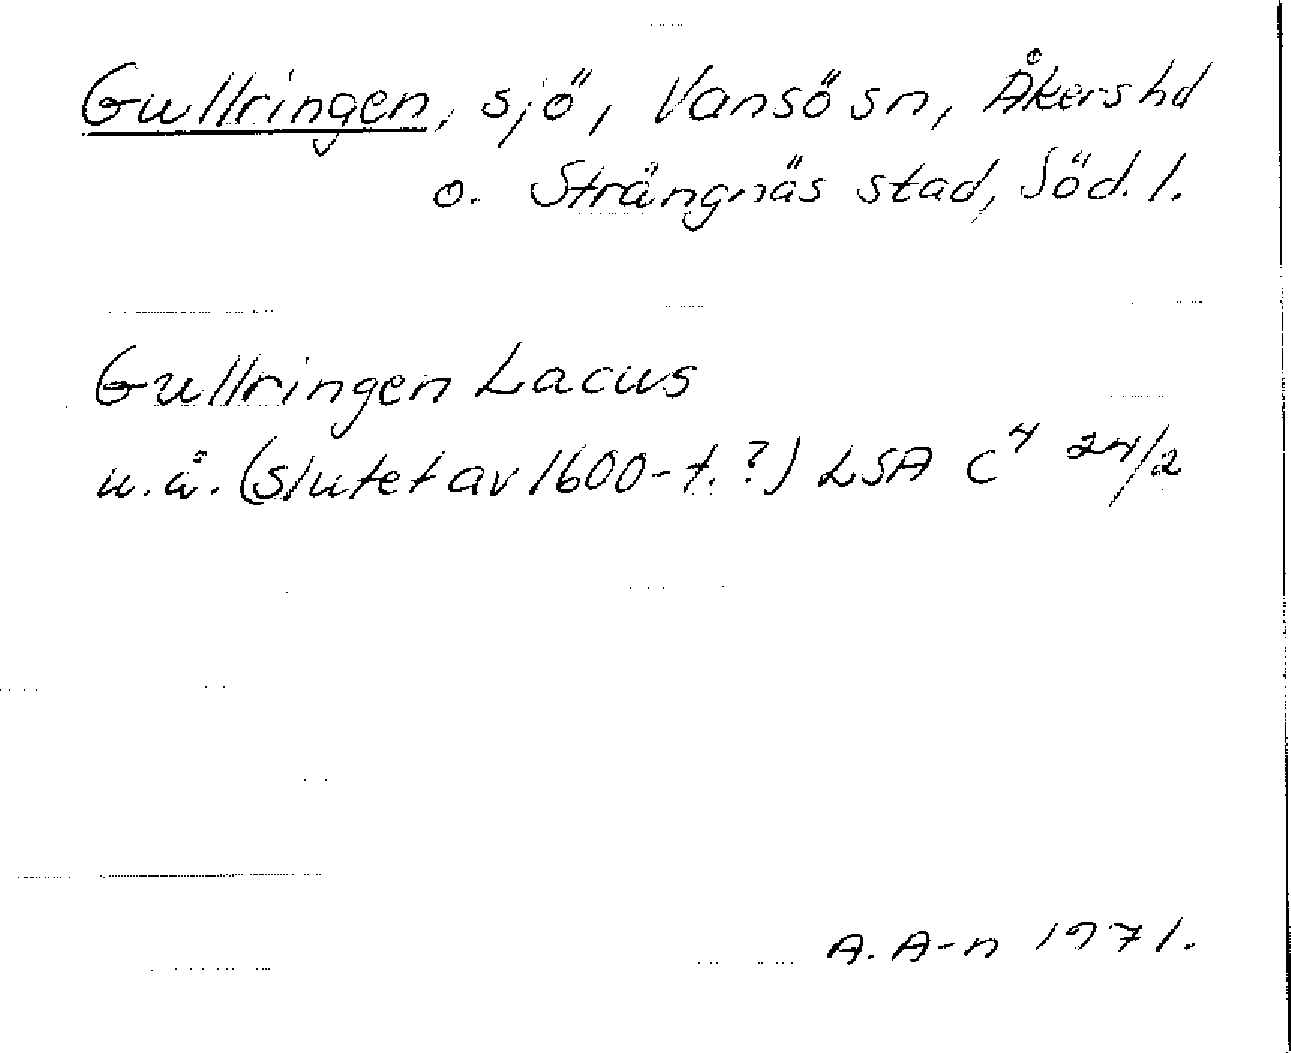 Gullringen, sjö, Vansö sn, Åkers hd
o. Strängnäs stad, Söd. l.
Gullringen Lacus
u.å. (slutet av 1600-t.?) LSA C⁴ 24/2
A. A-n 1971.